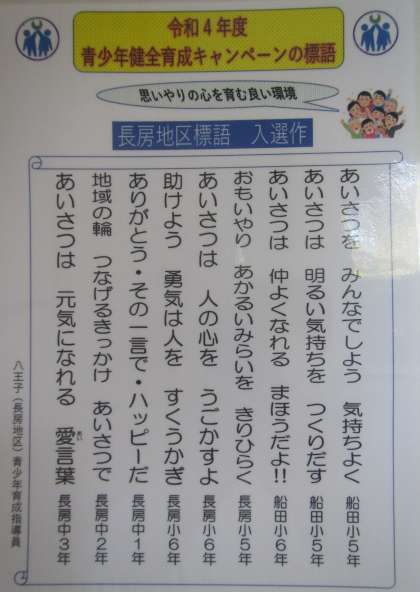 令和4年度
青少年健全育成キャンペーンの標語
思いやりの心を育む良い環境
長房地区標語 入選作
あいさつを みんなでしよう 気持ちよく 船田小5年
あいさつは 明るい気持ちを つくりだす 船田小5年
あいさつは 仲よくなれる まほうだよ!! 船田小6年
おもいやり あかるいみらいを きりひらく 長房小5年
あいさつは 人の心を うごかすよ 長房小6年
助けよう 勇気は人を すくうかぎ 長房小6年
ありがとう・その一言で・ハッピーだ 長房中1年
地域の輪 つなげるきっかけ あいさつで 長房中2年
あいさつは 元気になれる 愛言葉 長房中3年
あい
八王子(長房地区)青少年育成指導員